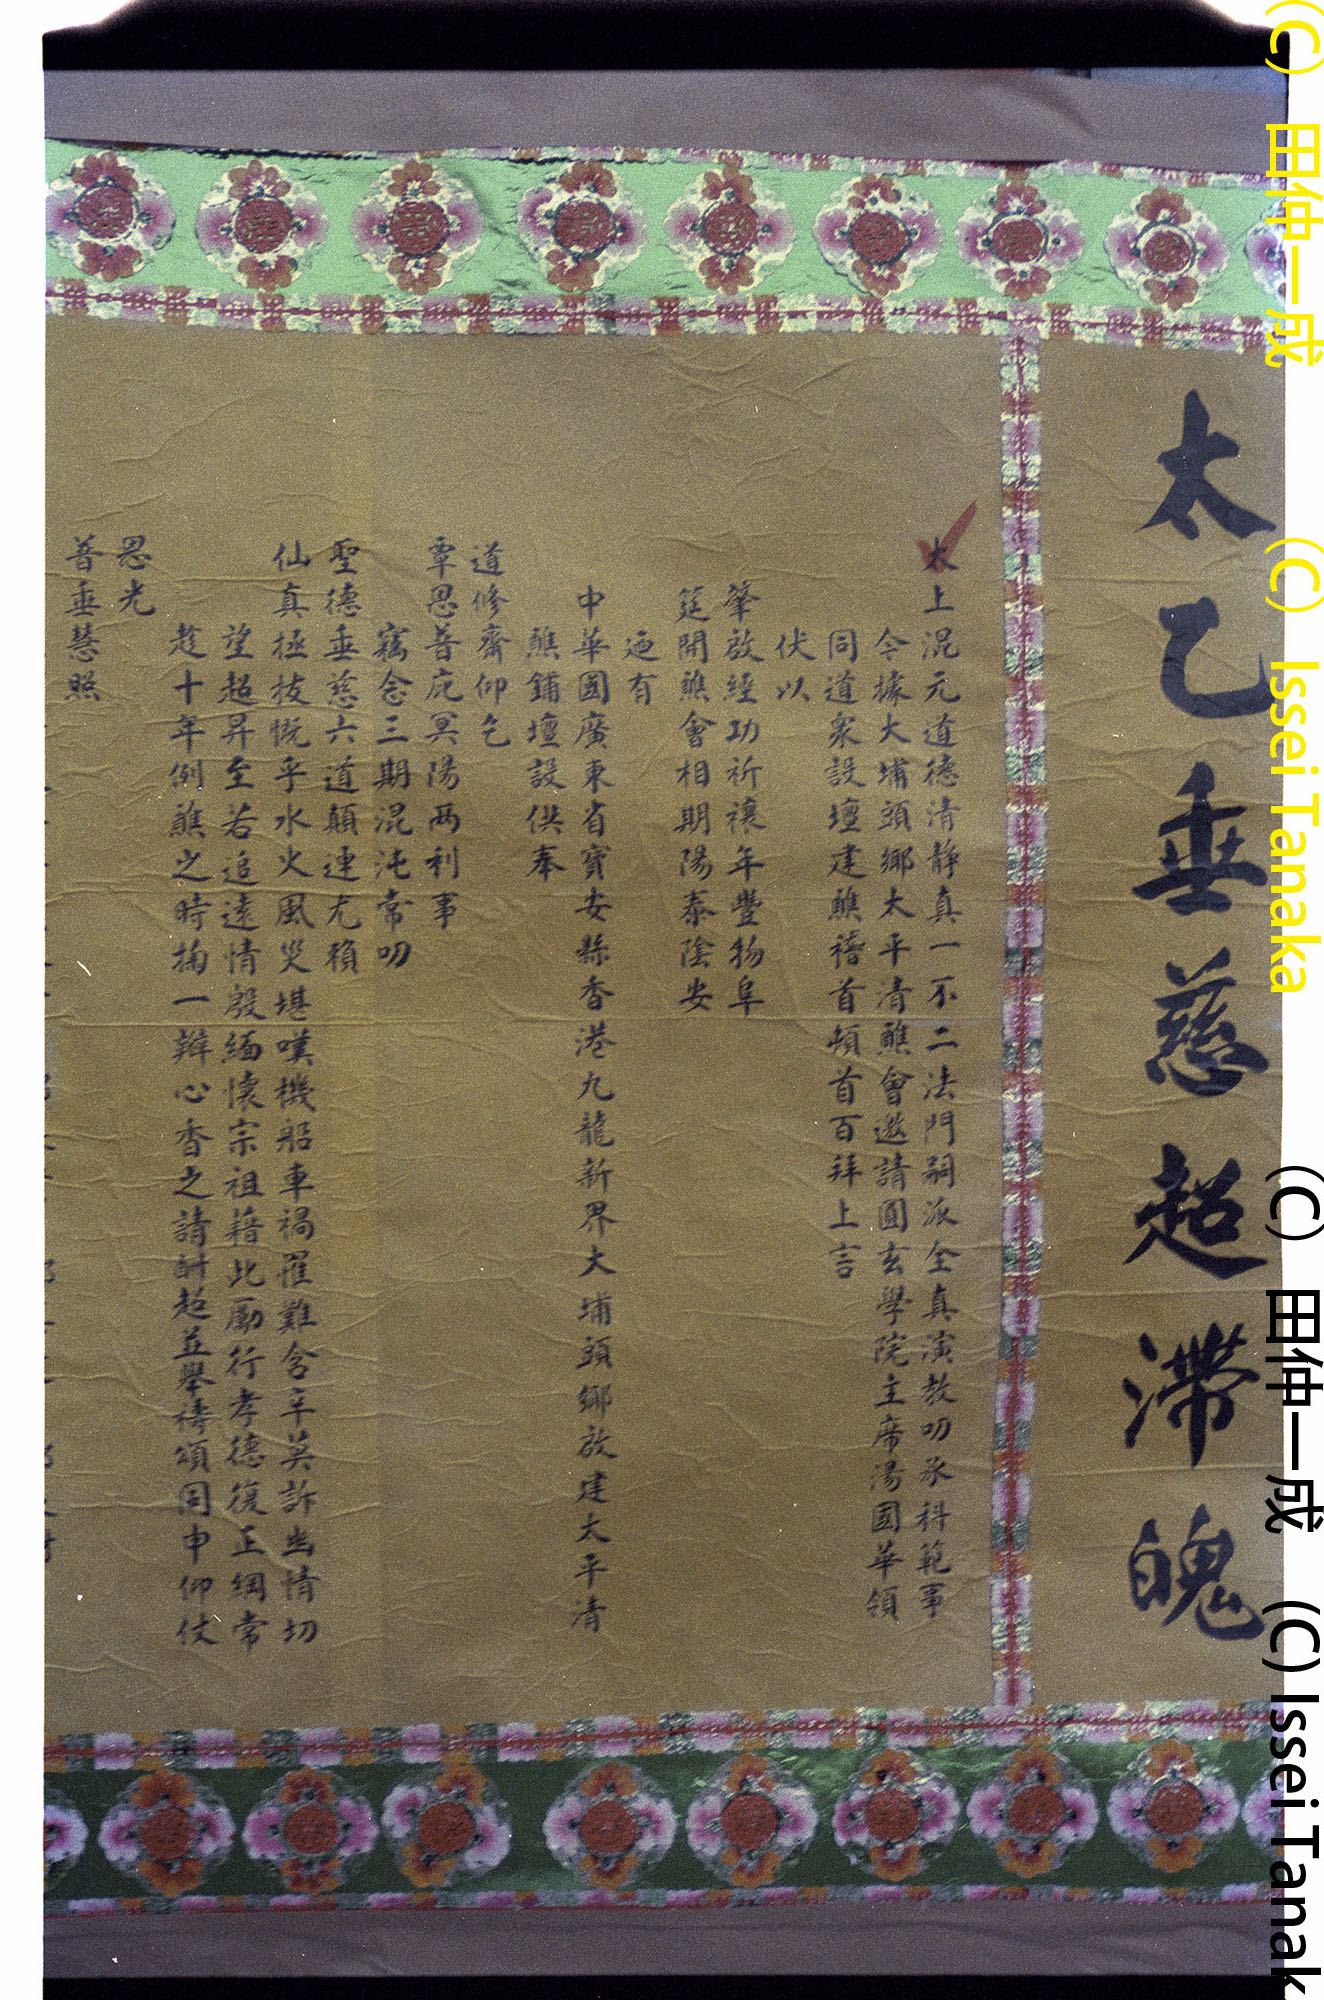 太乙垂慈超滯魄
太上混元道德清靜真一不二法門嗣派全真演教叨承科範事
今據大埔頭鄉太平清醮會邀請圓玄學院主席湯國華領
同道眾設壇建醮稽首頓首百拜上言
伏以
肇啟經功祈禳年豐物阜
筵開醮會相期陽泰陰安
迊有
中華國廣東省寶安縣香港九龍新界大埔頭鄉啟建太平清
醮鋪壇設供奉
道修齋仰乞
覃恩普庇冥陽兩利事
竊念三期混沌常叨
聖德垂慈六道顛連尤賴
仙真拯拔慨乎水火風災堪嘆機船車禍罹難含辛莫訴幽情切
望超昇至若追遠情殷緬懷宗祖藉此勵行孝德復正綱常
趁十年例醮之時掬一瓣心香之請酧超並舉禱頌同申仰仗
恩光
普垂慧照
(C) 田仲一成 (C) Issei Tanaka (C) 田仲一成 (C) Issei Tanak